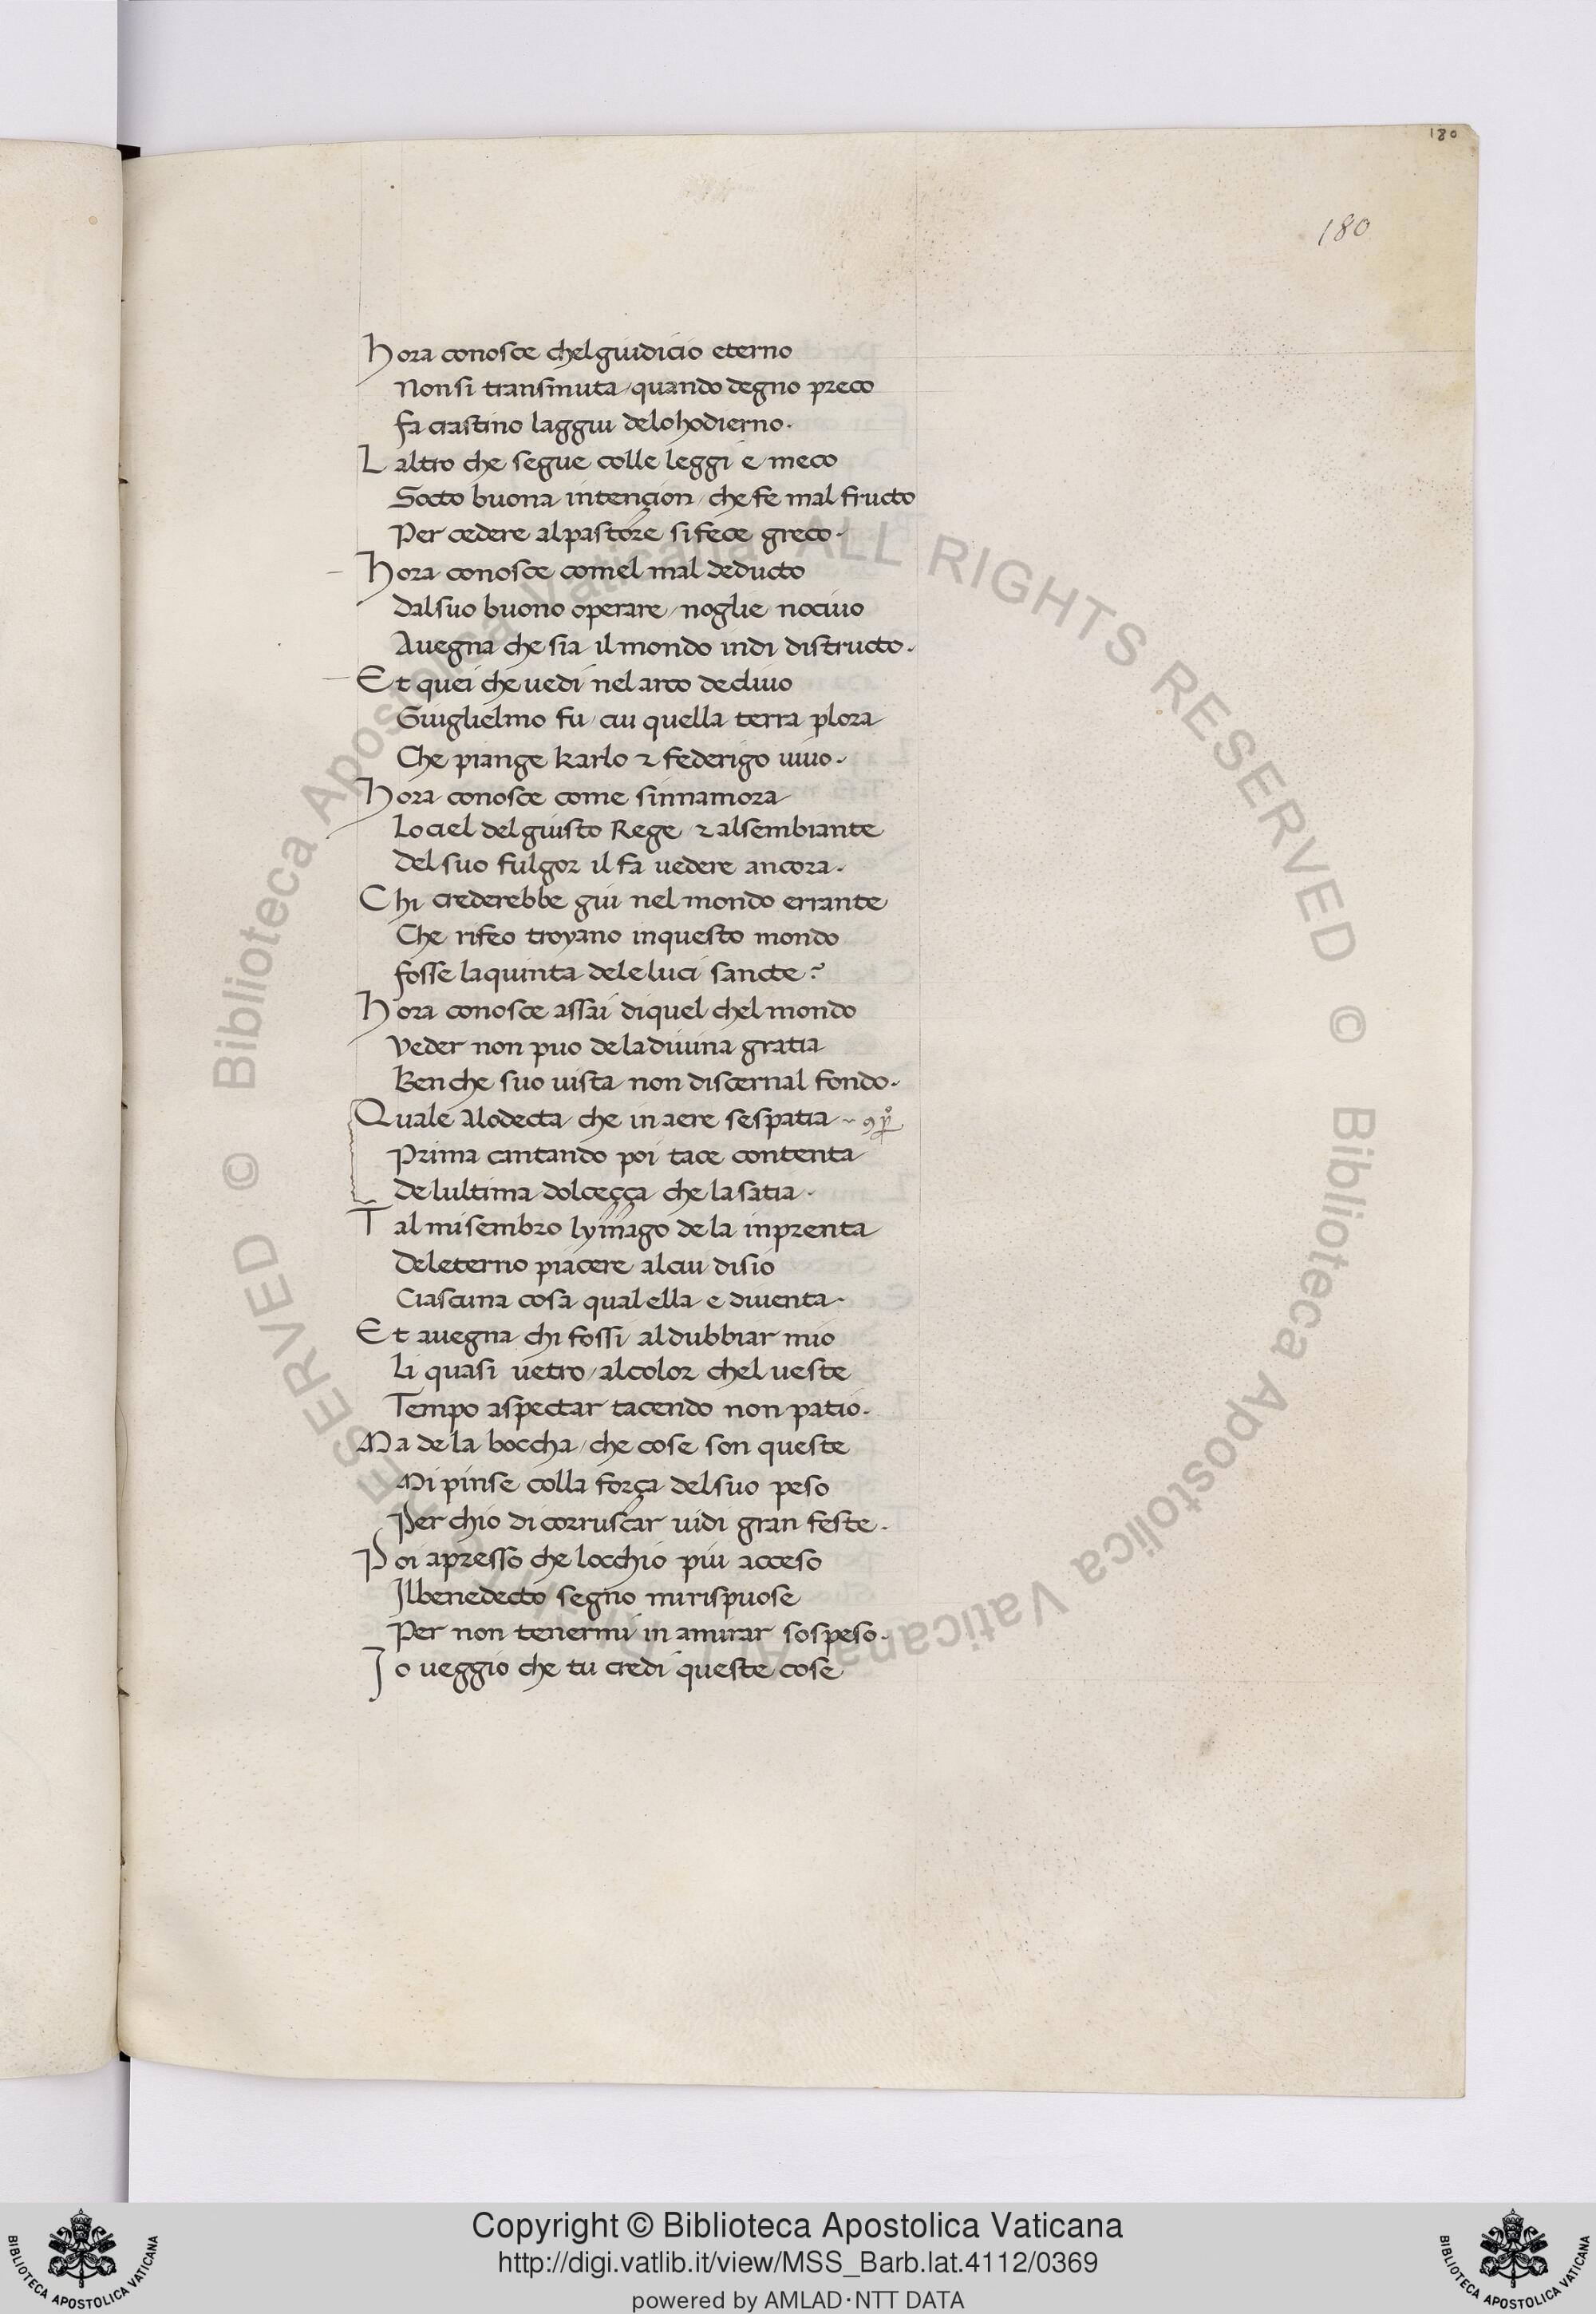 180
180
Hora conosce chel giudicio eterno
Non si transmuta / quando degno preco
Fa crastino laggiu delo hodierno.
L altro che segue colle leggi e meco
Socto buona intençion / che fe mal fructo
Per cedere al pastore si fece greco.
Hora conosce comel mal deducto
Dal suo buono operare / noglie nociuo
Auegna che sia il mondo indi distructo.
Et quei che uedi nel arco decliuo
Guiglielmo fu / cui quella terra plora
Che piange karlo ⁊ federigo uiuo.
Hora conosce come sinnamora
Lo ciel del giusto Rege / ⁊ al sembiante
Del suo fulgor il fa uedere ancora.
Chi crederebbe giu nel mondo errante
Che rifeo troyano in questo mondo
Fosse la quinta dele luci sancte?
Hora conosce assai di quel chel mondo
Veder non puo dela diuina gratia
Ben che suo uista non discernal fondo.
Quale alodecta che in aere se spatia
Prima cantando poi tace contenta
De lultima dolceçça che la satia.
Tal mi sembro lymago de la inprenta
Deleterno piacere al cui disio
Ciascuna cosa qual ella e diuenta.
Et auegna chi fossi al dubbiar mio
Li quasi uetro / al color chel ueste
Tempo aspectar tacendo non patio.
Ma de la boccha / che cose son queste
Mi pinse colla força del suo peso
Per chio di corruscar uidi gran feste.
Poi apresso che locchio piu acceso
Il benedecto segno mi rispuose
Per non tenermi in amirar sospeso.
Io ueggio che tu credi queste cose
© Biblioteca Apostolica Vaticana ALL RIGHTS RESERVED © Biblioteca Apostolica Vaticana ALL RIGHTS RESERVED
Copyright © Biblioteca Apostolica Vaticana
http://digi.vatlib.it/view/MSS_Barb.lat.4112/0369
powered by AMLAD·NTT DATA
BIBLIOTECA APOSTOLICA VATICANA
BIBLIOTECA APOSTOLICA VATICANA